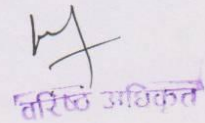 वरिष्ठ अधिकृत